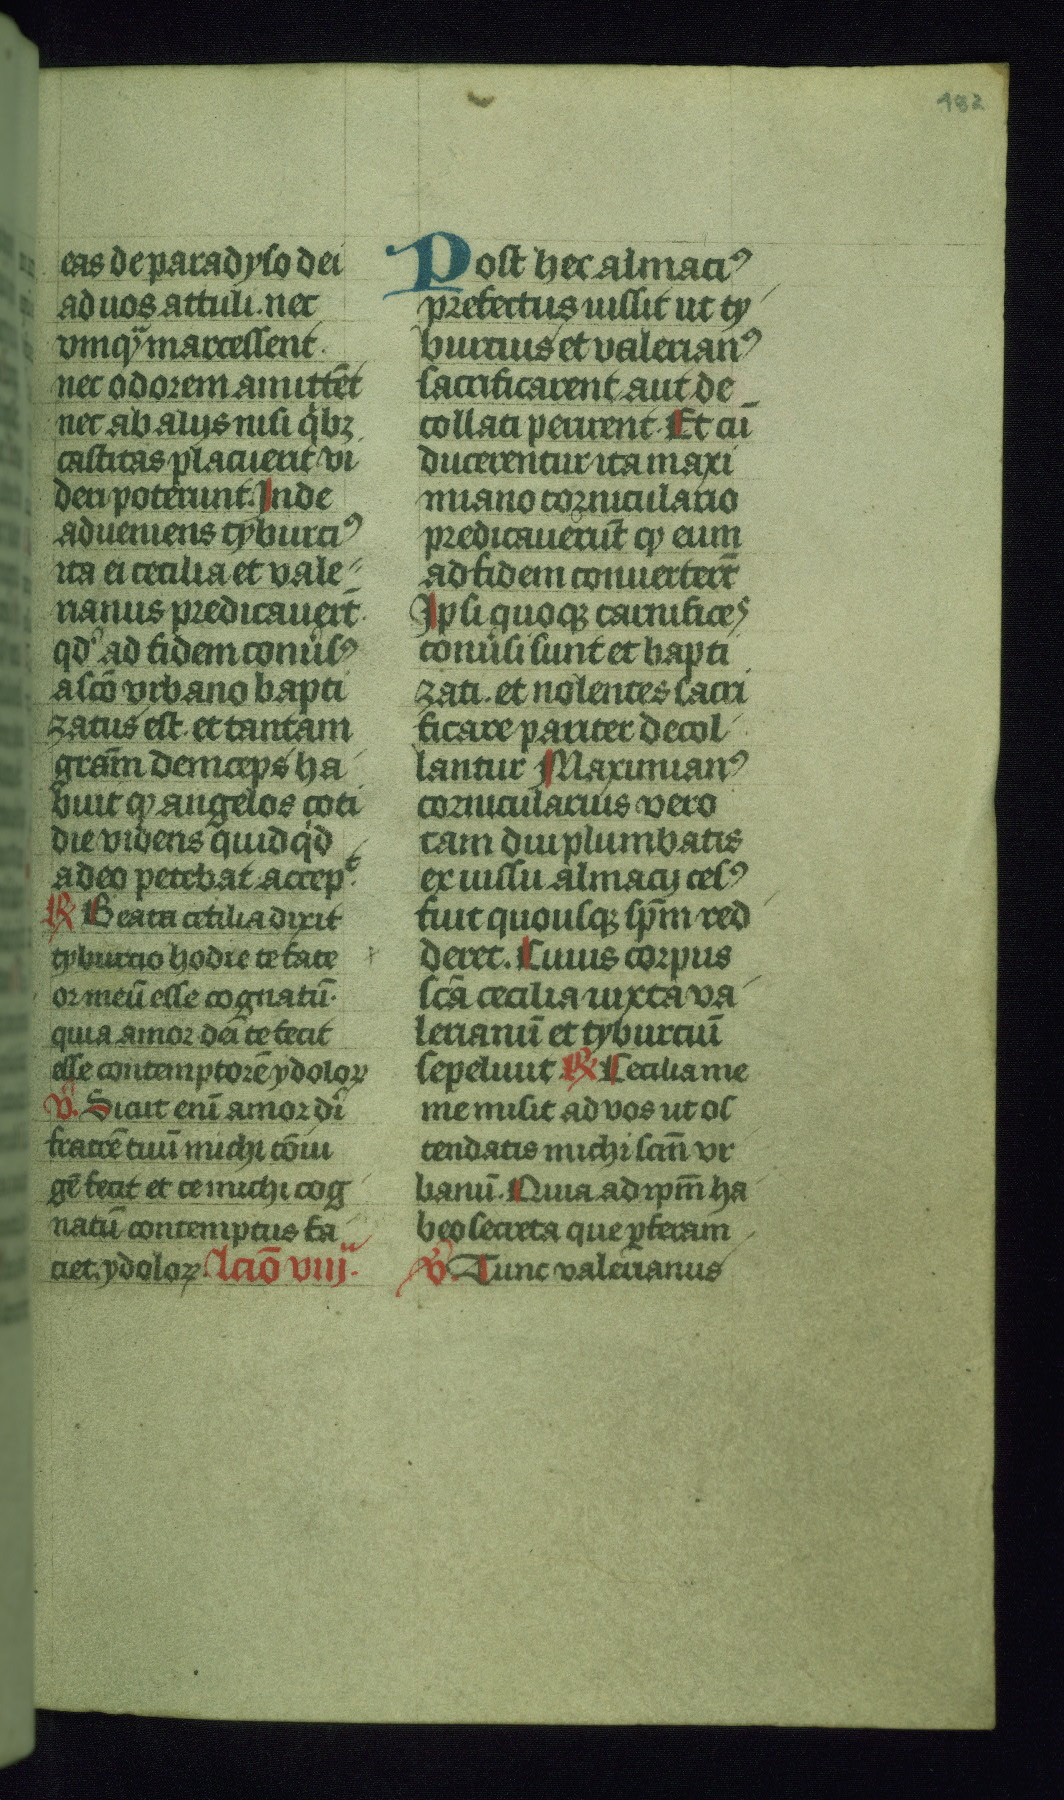 182
eas de paradyso dei
ad uos attuli. nec
vmqͣ marcessent.
nec odorem amittēt
nec ab alijs nisi qͥbꝫ
castitas placuerit vi
deri poterunt. Inde
adueniens tyburciꝰ
ita ei cecilia et vale
rianus predicauert̄
qd' ad fidem conuͥsꝰ
a sc̄o vrbano bapti
zatus est. et tantam
gram̄ deinceps ha
buit ꝙ angelos coti
die videns quidqͥd
a deo petebat accepᵗ.
℟ Beata cecilia dixit
tyburcio hodie te fate
or meū esse cognatū.
quia amor dei te fecit
esse contemptorē ydoloꝝ
℣. Sicut eni̅ amor di̅
fratrē tuū michi cōiu
gē fecit et te michi cog
natū contemptus fa
ciet. ydoloꝝ. lcio̅ viij.
Post hec almaciꝰ
prefectus iussit ut ty
burcius et valerianꝰ
sacrificarent aut de
collati perirent. Et cū
ducerentur ita maxi
miano corniculario
predicauerūt ꝙ eum
ad fidem conuerterēt
Ipsi quoqꝫ carnifices
conuͥsi sunt et bapti
zati. et nolentes sacri
ficare pariter decol
lantur Maximianꝰ
cornicularius vero
tam diu plumbatis
ex iussu almacij cesꝰ
fuit quousqꝫ spm̄ red
deret. Cuius corpus
scā cecilia iuxta va
lerianū et tyburciū
sepeliuit ℟ Cecilia me
me misit ad vos ut os
tendatis michi scm̄ vr
banū. Quia ad ipm̄ ha
beo secreta que ꝑferam
℣. Tunc valerianus